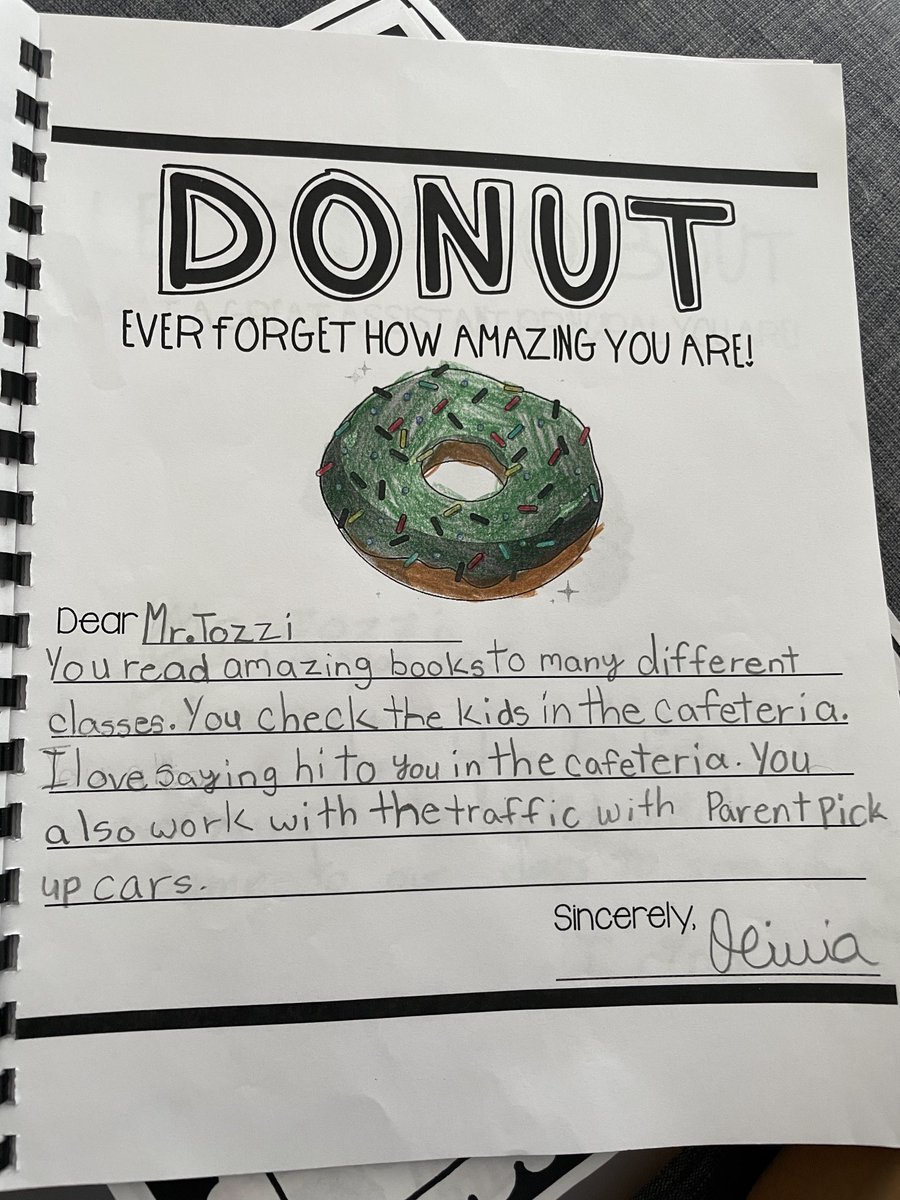 DONUT
EVER FORGET HOW AMAZING YOU ARE!
Dear Mr. Tozzi
You read amazing books to many different
classes. You check the kids in the cafeteria.
I love saying hi to you in the cafeteria. You
also work with the traffic with Parent pick
up cars.
Sincerely, Olivia